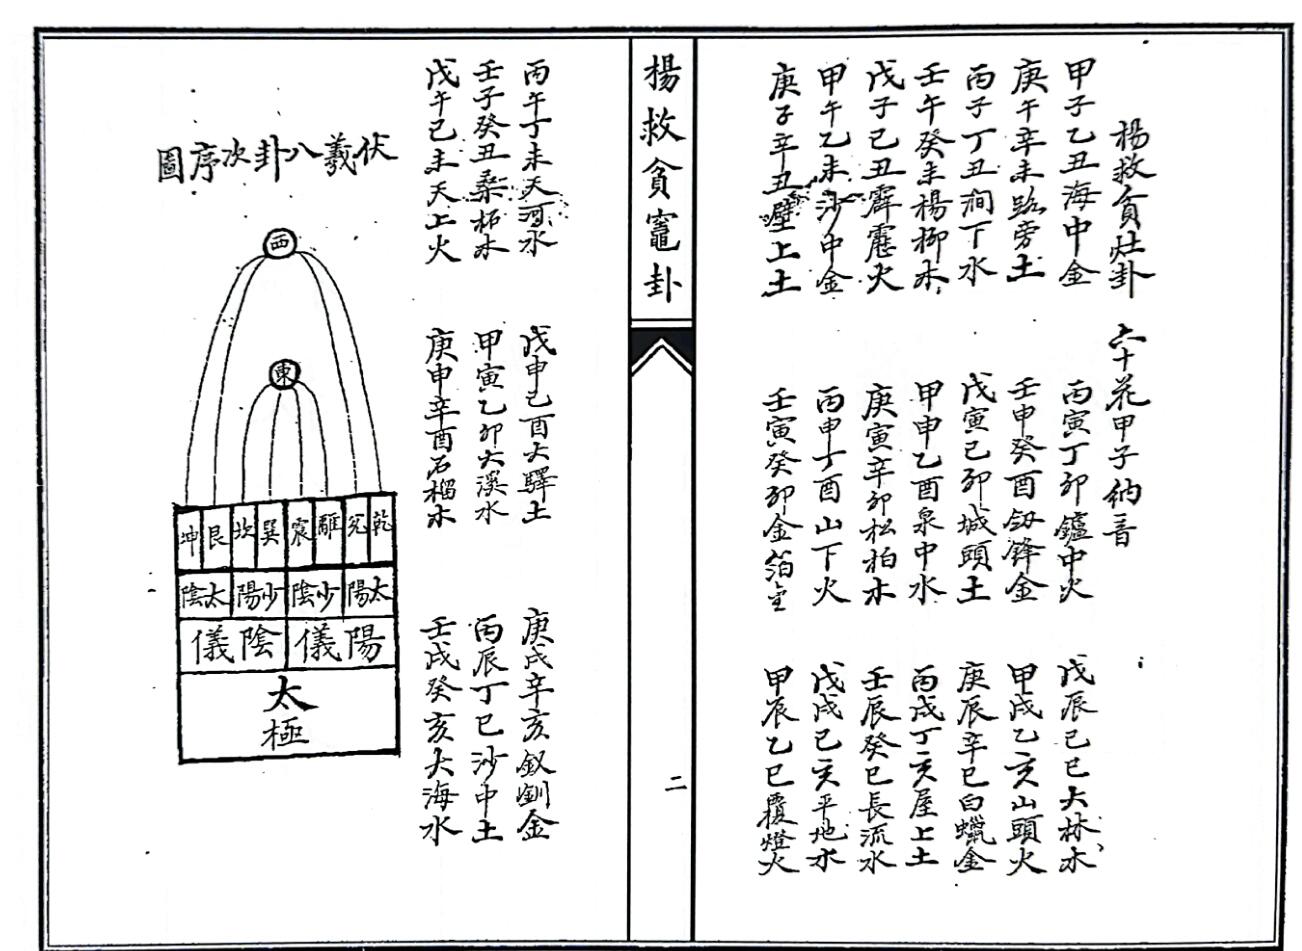 楊救貧灶卦 六十花甲子納音
甲子乙丑海中金 丙寅丁卯鑪中火 戊辰己巳大林木
庚午辛未路旁土 壬申癸酉釰鋒金 甲戌乙亥山頭火
丙子丁丑澗下水 戊寅己卯城頭土 庚辰辛巳白蠟金
壬午癸未楊柳木 甲申乙酉泉中水 丙戌丁亥屋上土
戊子己丑霹靂火 庚寅辛卯松柏木 壬辰癸巳長流水
甲午乙未沙中金 丙申丁酉山下火 戊戌己亥平地木
庚子辛丑壁上土 壬寅癸卯金箔金 甲辰乙巳覆燈火
楊救貧竈卦
二
丙午丁未天河水 戊申己酉大驛土 庚戌辛亥釵釧金
壬子癸丑桑柘木 甲寅乙卯大溪水 丙辰丁巳沙中土
戊午己未天上火 庚申辛酉石榴木 壬戌癸亥大海水
伏羲八卦次序圖
西
東
乾 兌 離 震 巽 坎 艮 坤
太陽 少陰 少陽 太陰
陽儀 陰儀
太極